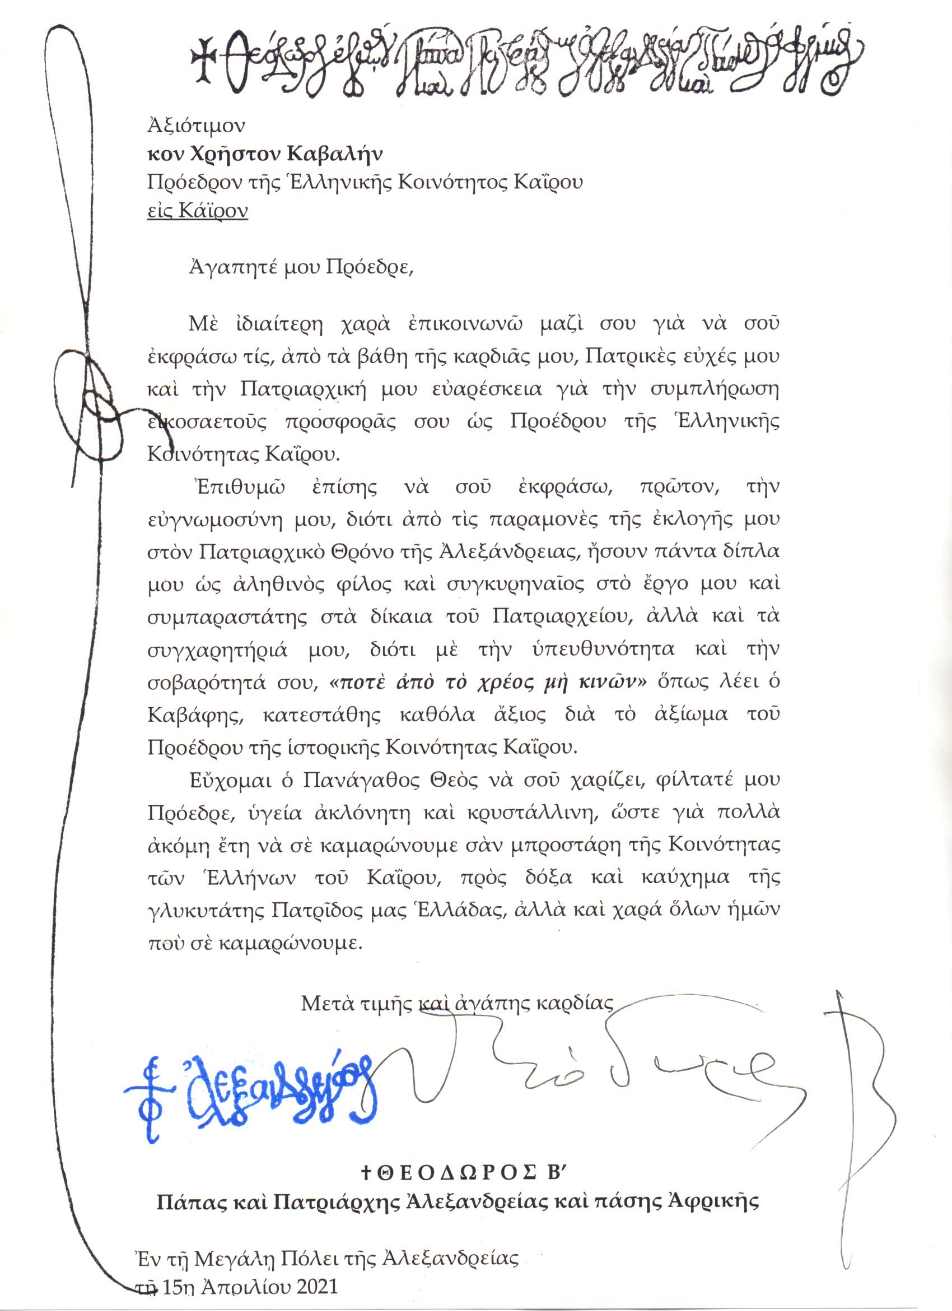 Ἀξιότιμον
κον Χρῆστον Καβαλήν
Πρόεδρον τῆς Ἑλληνικῆς Κοινότητος Καΐρου
εἰς Κάϊρον
Ἀγαπητέ μου Πρόεδρε,
Μὲ ἰδιαίτερη χαρὰ ἐπικοινωνῶ μαζὶ σου γιὰ νὰ σοῦ
ἐκφράσω τίς, ἀπὸ τὰ βάθη τῆς καρδιᾶς μου, Πατρικὲς εὐχές μου
καὶ τὴν Πατριαρχική μου εὐαρέσκεια γιὰ τὴν συμπλήρωση
εἰκοσαετοῦς προσφορᾶς σου ὡς Προέδρου τῆς Ἑλληνικῆς
Κοινότητας Καΐρου.
Ἐπιθυμῶ ἐπίσης νὰ σοῦ ἐκφράσω, πρῶτον, τὴν
εὐγνωμοσύνη μου, διότι ἀπὸ τὶς παραμονὲς τῆς ἐκλογῆς μου
στὸν Πατριαρχικὸ Θρόνο τῆς Ἀλεξάνδρειας, ἤσουν πάντα δίπλα
μου ὡς ἀληθινὸς φίλος καὶ συγκυρηναῖος στὸ ἔργο μου καὶ
συμπαραστάτης στὰ δίκαια τοῦ Πατριαρχείου, ἀλλὰ καὶ τὰ
συγχαρητήριά μου, διότι μὲ τὴν ὑπευθυνότητα καὶ τὴν
σοβαρότητά σου, «ποτὲ ἀπὸ τὸ χρέος μὴ κινῶν» ὅπως λέει ὁ
Καβάφης, κατεστάθης καθόλα ἄξιος διὰ τὸ ἀξίωμα τοῦ
Προέδρου τῆς ἱστορικῆς Κοινότητας Καΐρου.
Εὔχομαι ὁ Πανάγαθος Θεὸς νὰ σοῦ χαρίζει, φίλτατέ μου
Πρόεδρε, ὑγεία ἀκλόνητη καὶ κρυστάλλινη, ὥστε γιὰ πολλὰ
ἀκόμη ἔτη νὰ σὲ καμαρώνουμε σὰν μπροστάρη τῆς Κοινότητας
τῶν Ἑλλήνων τοῦ Καΐρου, πρὸς δόξα καὶ καύχημα τῆς
γλυκυτάτης Πατρῖδος μας Ἑλλάδας, ἀλλὰ καὶ χαρά ὅλων ἡμῶν
ποὺ σὲ καμαρώνουμε.
Μετὰ τιμῆς καὶ ἀγάπης καρδίας
†ΘΕΟΔΩΡΟΣ Β′
Πάπας καὶ Πατριάρχης Ἀλεξανδρείας καὶ πάσης Ἀφρικῆς
Ἐν τῇ Μεγάλῃ Πόλει τῆς Ἀλεξανδρείας
τῇ 15η Ἀπριλίου 2021